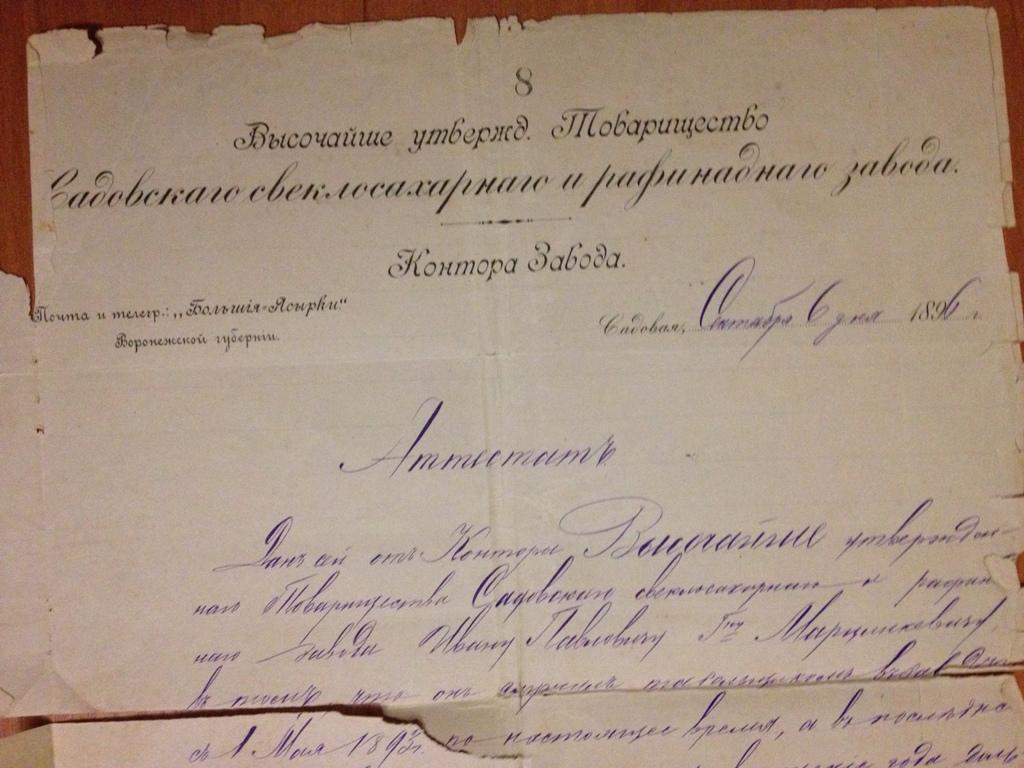 8
Высочайше утвержд. Товарищество
Садовскаго свеклосахарнаго и рафинаднаго завода.
Контора Завода.
Почта и телегр.: „Большія-Ясырки."
Воронежской губерніи.
Садовая, Сентября 6 дня 1896 г.
Аттестатъ
Данъ сей отъ Конторы Высочайше утвержден-
наго Товарищества Садовскаго свеклосахарнаго и рафинад
наго завода Ивану Павловичу Г-ну Марцинкевичу
въ томъ что онъ служилъ
съ 1 Мая 189 г. по настоящее время, а въ последнее
года